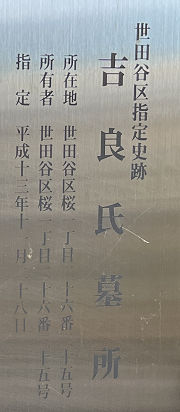 世田谷区指定史跡
吉良氏墓所
所在地 世田谷区桜 丁目 十六番 十五号
所有者 世田谷区桜 丁目二十六番 十五号
指定 平成十三年十 月 十八日